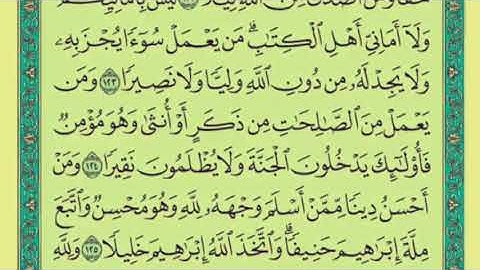 حَقًّا وَمَنْ أَصْدَقُ مِنَ ٱللَّهِ قِيلًا ١٢٢ لَّيْسَ بِأَمَانِيِّكُمْ
وَلَآ أَمَانِيِّ أَهْلِ ٱلْكِتَٰبِۗ مَن يَعْمَلْ سُوٓءًا يُجْزَ بِهِۦ
وَلَا يَجِدْ لَهُۥ مِن دُونِ ٱللَّهِ وَلِيًّا وَلَا نَصِيرًا ١٢٣ وَمَن
يَعْمَلْ مِنَ ٱلصَّٰلِحَٰتِ مِن ذَكَرٍ أَوْ أُنثَىٰ وَهُوَ مُؤْمِنٌ
فَأُو۟لَٰٓئِكَ يَدْخُلُونَ ٱلْجَنَّةَ وَلَا يُظْلَمُونَ نَقِيرًا ١٢٤ وَمَنْ
أَحْسَنُ دِينًا مِّمَّنْ أَسْلَمَ وَجْهَهُۥ لِلَّهِ وَهُوَ مُحْسِنٌ وَٱتَّبَعَ
مِلَّةَ إِبْرَٰهِيمَ حَنِيفًاۗ وَٱتَّخَذَ ٱللَّهُ إِبْرَٰهِيمَ خَلِيلًا ١٢٥ وَلِلَّهِ